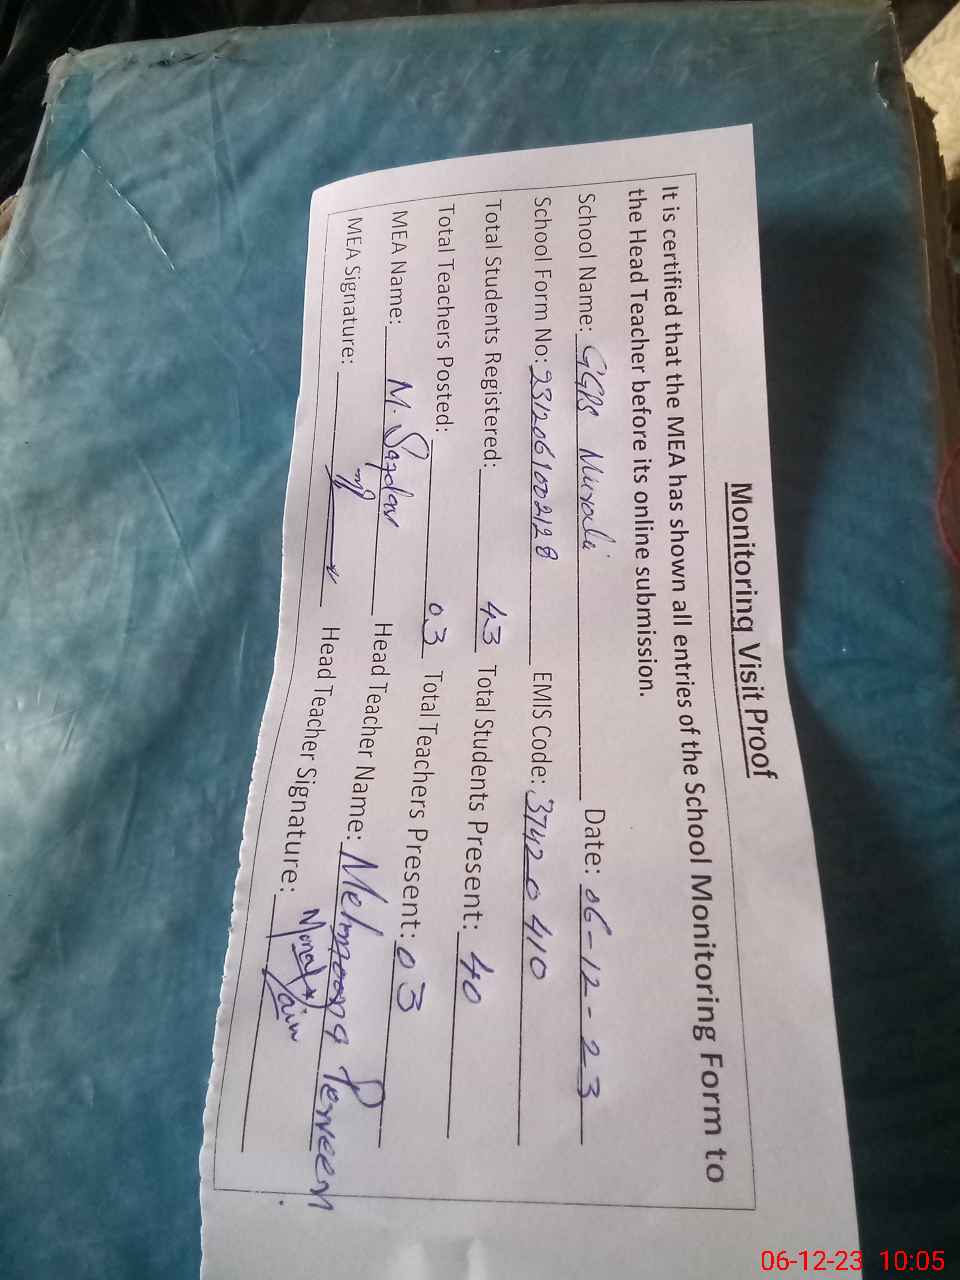 Monitoring Visit Proof
It is certified that the MEA has shown all entries of the School Monitoring Form to
the Head Teacher before its online submission.
School Name: GGPS Date: 06-12-23
School Form No: 2312061002128 EMIS Code: 37420410
Total Students Registered: 43 Total Students Present: 40
Total Teachers Posted: 03 Total Teachers Present: 03
MEA Name: M. Head Teacher Name: Perveen
MEA Signature: Head Teacher Signature:
06-12-23 10:05